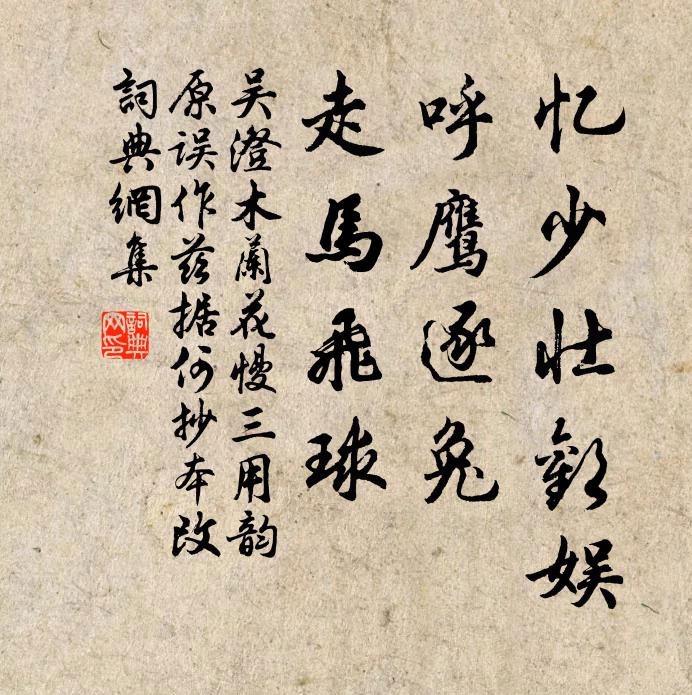 忆少壮歡娱
呼鹰逐兔
走馬飛球
吴澄木蘭花慢三用韵
原误作兹据何抄本改
詞典網集
詞典网印